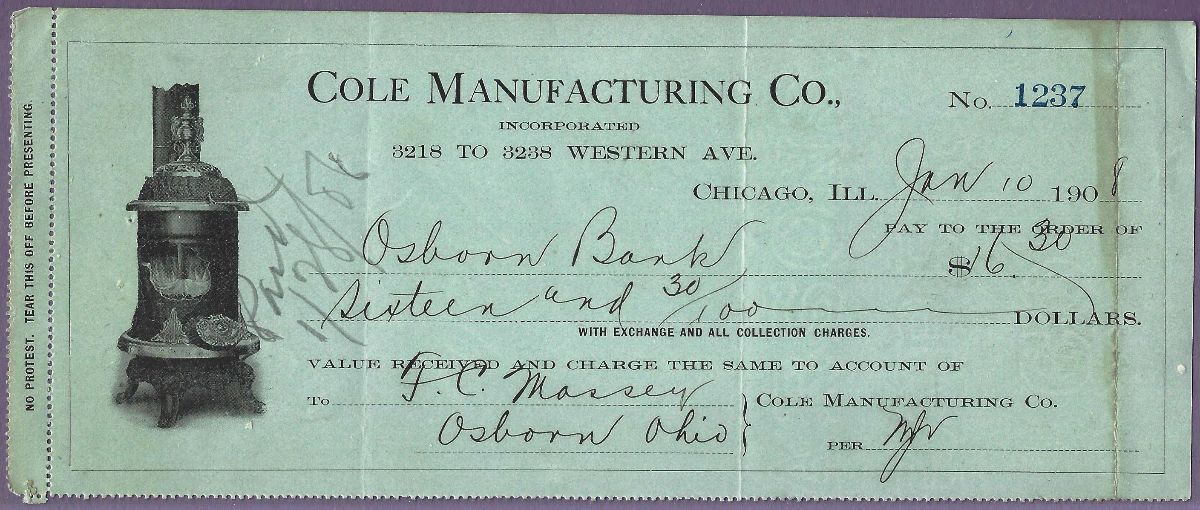 NO PROTEST. TEAR THIS OFF BEFORE PRESENTING.
COLE MANUFACTURING CO.,
INCORPORATED
3218 TO 3238 WESTERN AVE.
No. 1237
CHICAGO, ILL. Jan 10 1908
PAY TO THE ORDER OF
Osborn Bank $16.30
Sixteen and 30/100 DOLLARS.
WITH EXCHANGE AND ALL COLLECTION CHARGES.
VALUE RECEIVED AND CHARGE THE SAME TO ACCOUNT OF
To F. C. Massey
COLE MANUFACTURING CO.
Osborn Ohio
PER